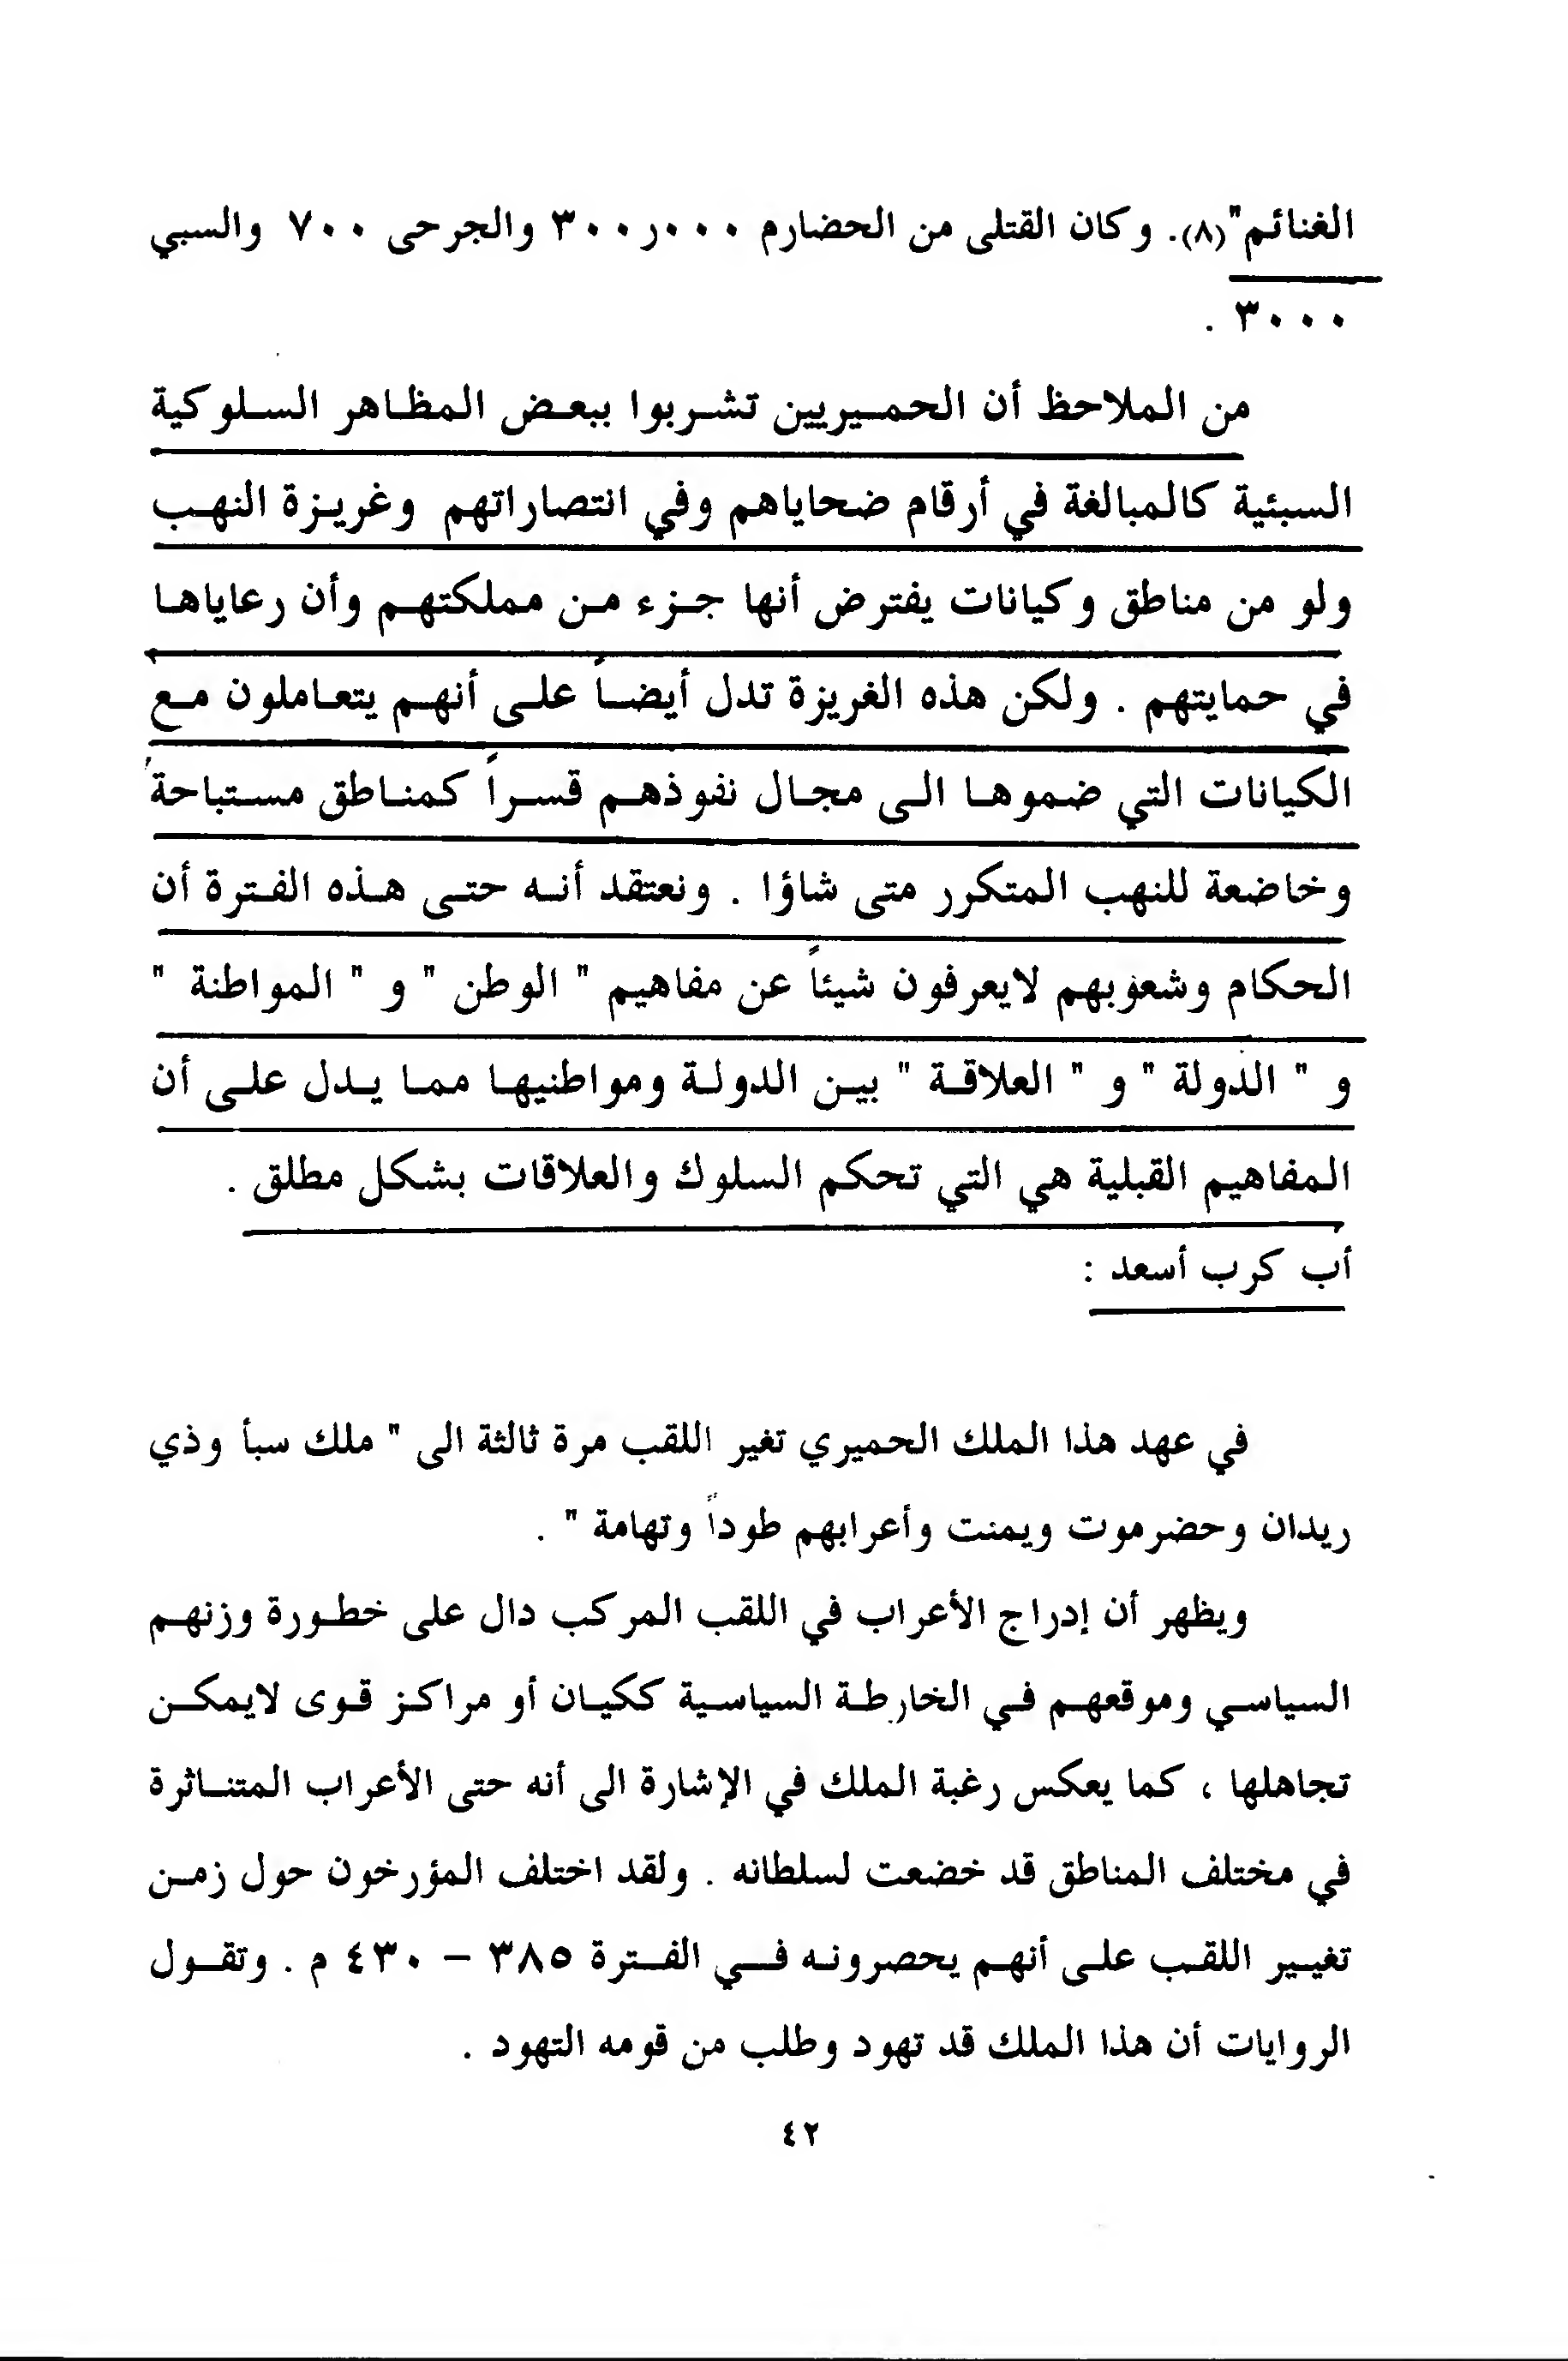 الغنائم"(٨). وكان القتلى من الحضارم ٣٠٠ر٠٠٠ والجرحى ٧٠٠ والسبي
٣٠٠٠ .
من الملاحظ أن الحميريين تشربوا ببعض المظاهر السلوكية
السبئية كالمبالغة في أرقام ضحاياهم وفي انتصاراتهم وغريزة النهب
ولو من مناطق وكيانات يفترض أنها جزء من مملكتهم وأن رعاياها
في حمايتهم . ولكن هذه الغريزة تدل أيضاً على أنهم يتعاملون مع
الكيانات التي ضموها الى مجال نفوذهم قسراً كمناطق مستباحة
وخاضعة للنهب المتكرر متى شاؤا . ونعتقد أنه حتى هذه الفترة أن
الحكام وشعوبهم لايعرفون شيئاً عن مفاهيم " الوطن " و " المواطنة "
و " الدولة " و " العلاقة " بين الدولة ومواطنيها مما يدل على أن
المفاهيم القبلية هي التي تحكم السلوك والعلاقات بشكل مطلق .
أب كرب أسعد :
في عهد هذا الملك الحميري تغير اللقب مرة ثالثة الى " ملك سبأ وذي
ريدان وحضرموت ويمنت وأعرابهم طوداً وتهامة " .
ويظهر أن إدراج الأعراب في اللقب المركب دال على خطورة وزنهم
السياسي وموقعهم في الخارطة السياسية ككيان أو مراكز قوى لايمكن
تجاهلها ، كما يعكس رغبة الملك في الإشارة الى أنه حتى الأعراب المتناثرة
في مختلف المناطق قد خضعت لسلطانه . ولقد اختلف المؤرخون حول زمن
تغيير اللقب على أنهم يحصرونه في الفترة ٣٨٥ – ٤٣٠ م . وتقول
الروايات أن هذا الملك قد تهود وطلب من قومه التهود .
٤٢